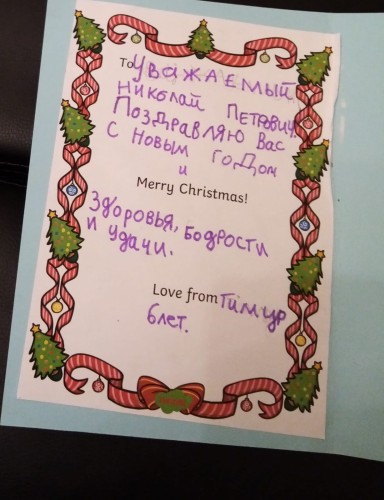 To Уважаемый
Николай Петрович
Поздравляю Вас
С Новым Годом
и
Merry Christmas!
Здоровья, бодрости
и удачи.
Love from Тимур
6 лет.